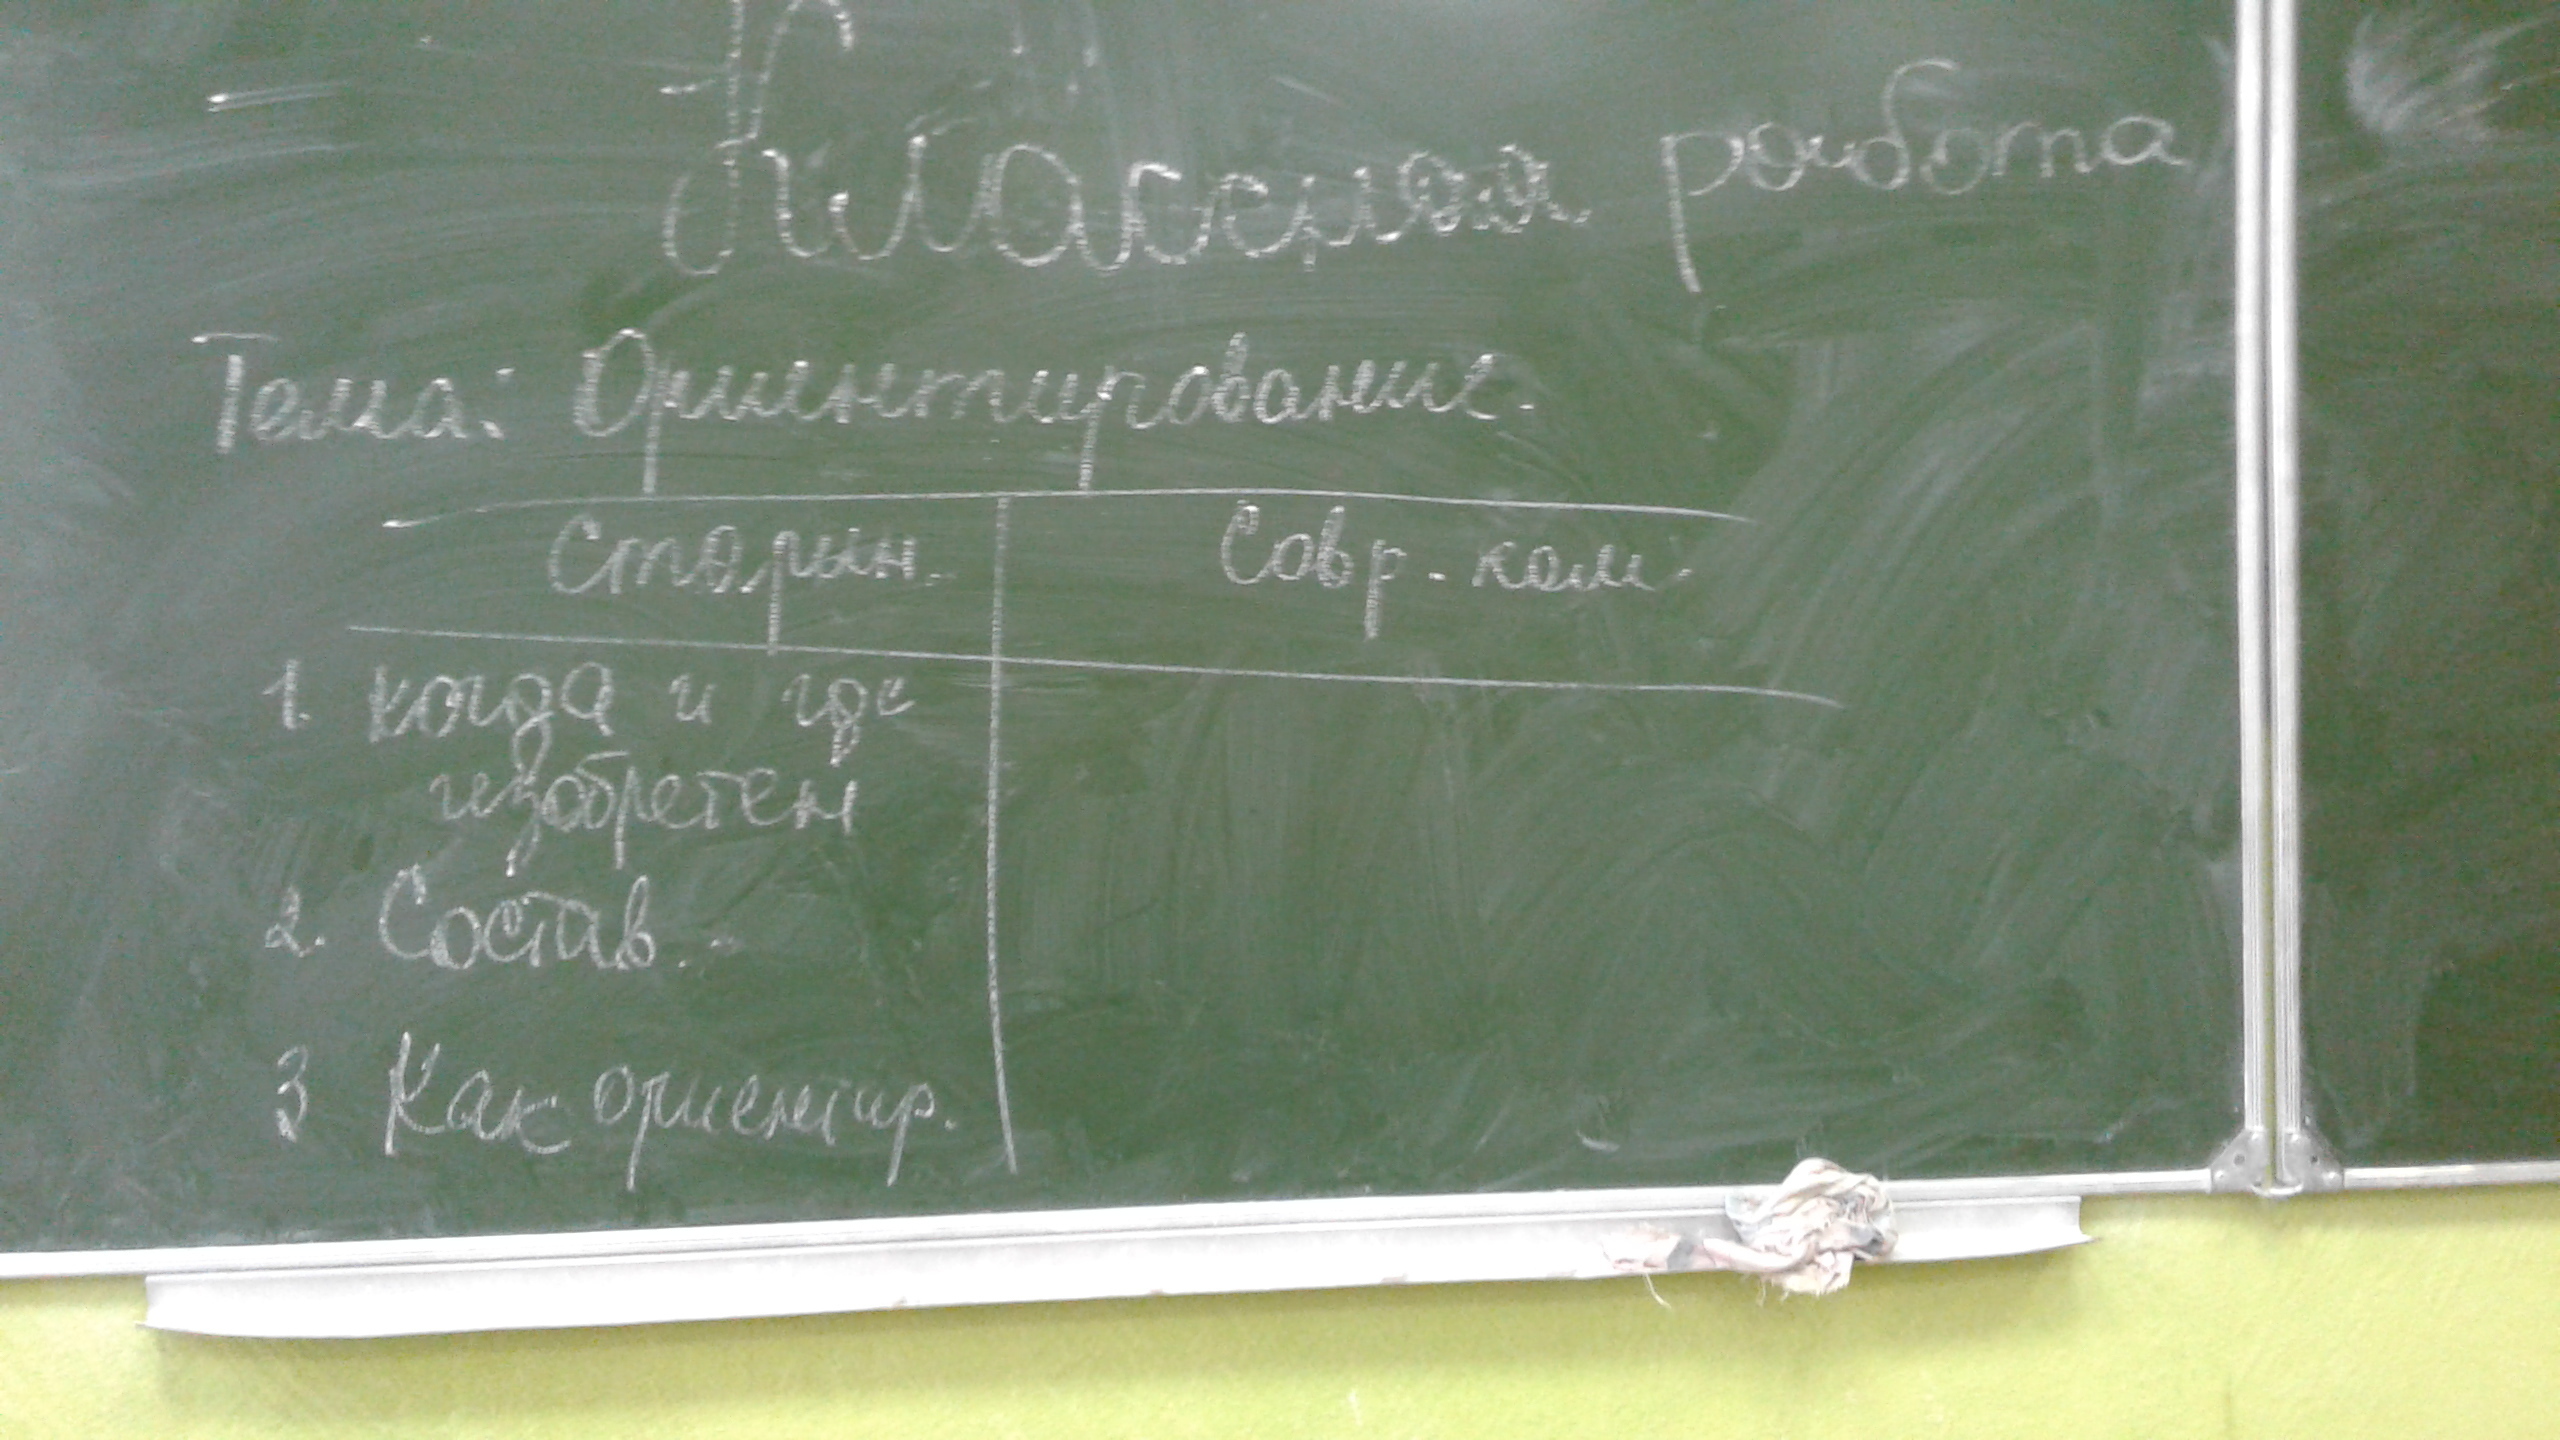 Классная работа
Тема: Ориентирование.
Старин. Совр. ком.
1. когда и где
изобретен
2. Состав.
3 Как ориентир.